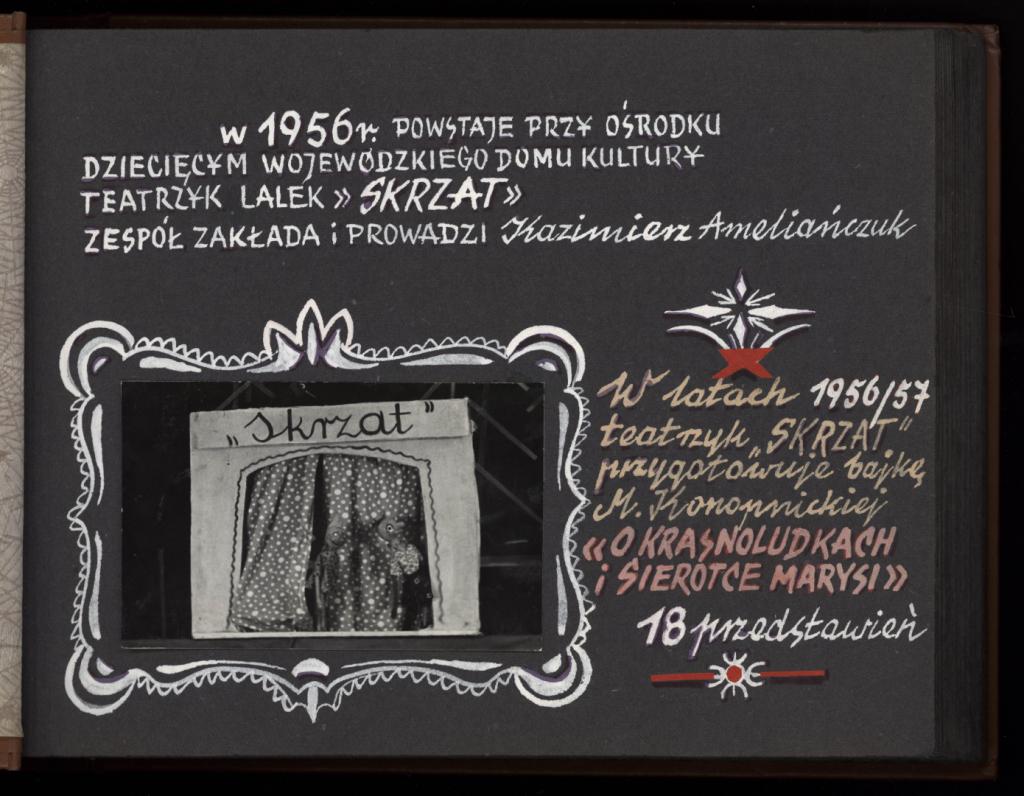 w 1956r. POWSTAJE PRZY OŚRODKU
DZIECIĘCYM WOJEWÓDZKIEGO DOMU KULTURY
TEATRZYK LALEK » SKRZAT »
ZESPÓŁ ZAKŁADA i PROWADZI Kazimierz Ameliańczuk
„Skrzat”
W latach 1956/57
teatrzyk „SKRZAT”
przygotowuje bajkę
M. Konopnickiej
«O KRASNOLUDKACH
i SIEROTCE MARYSI»
18 przedstawień